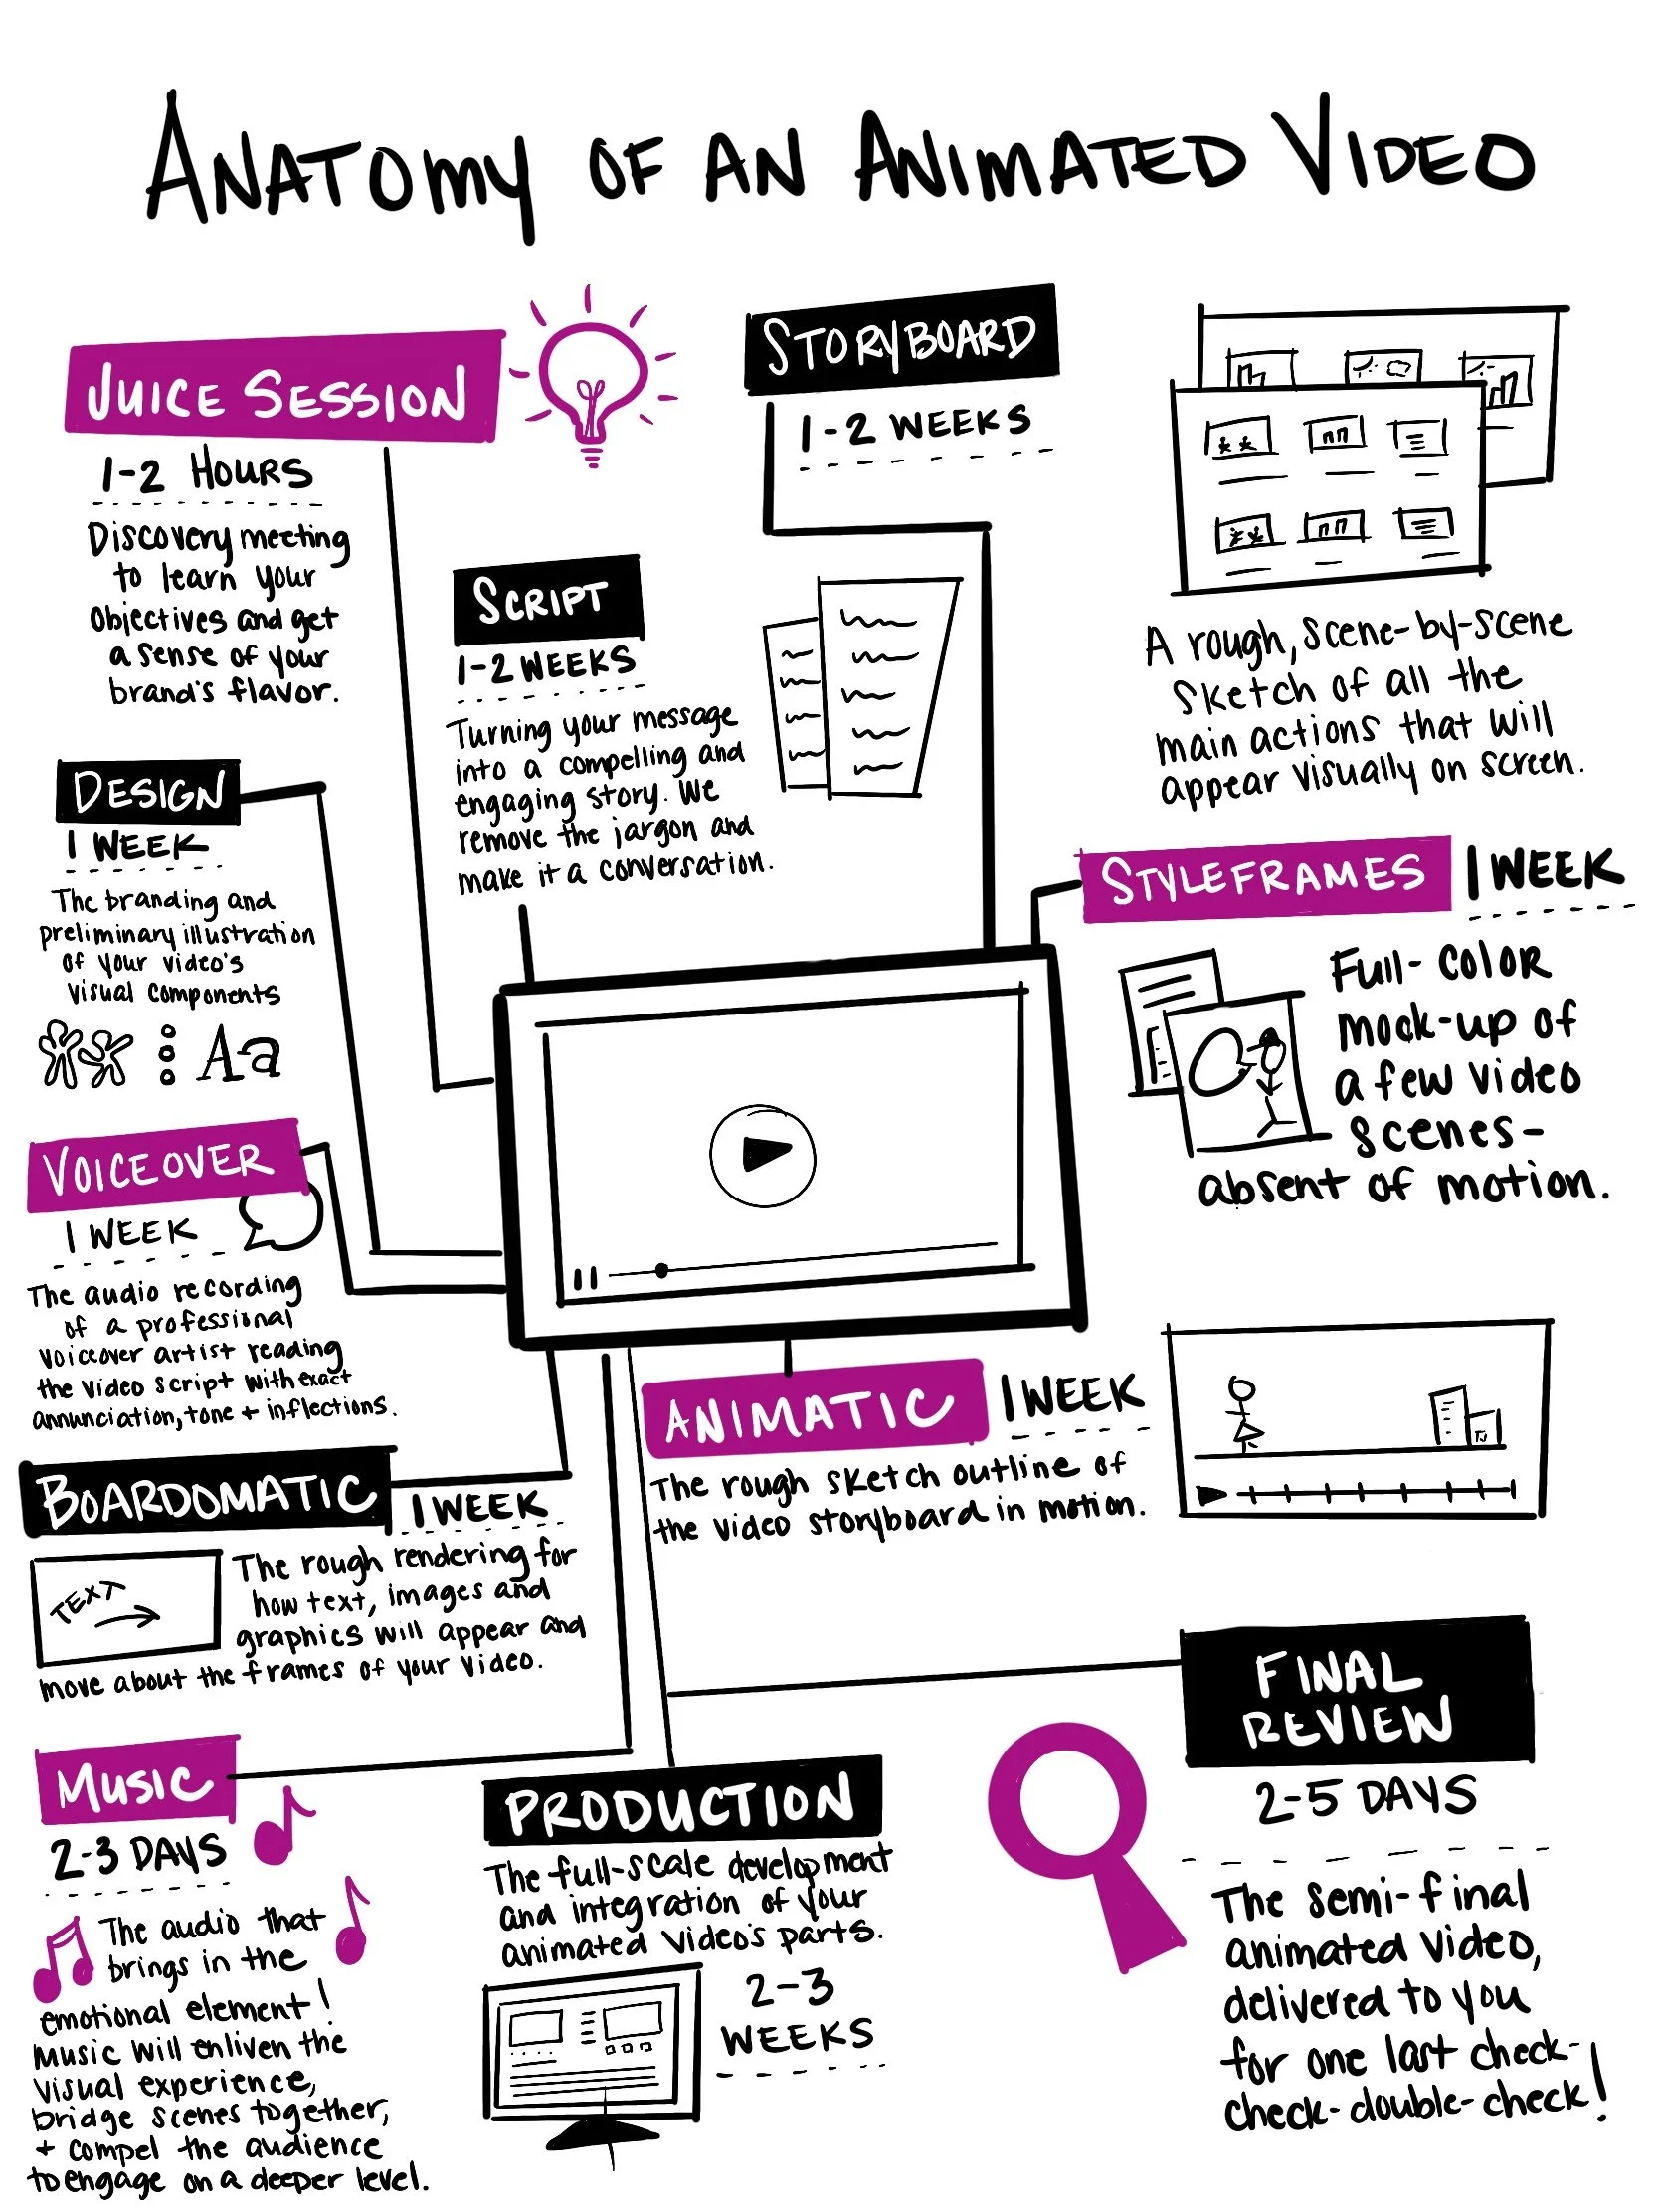 ANATOMY OF AN ANIMATED VIDEO
JUICE SESSION
1-2 HOURS
Discovery meeting
to learn your
objectives and get
a sense of your
brand's flavor.
STORYBOARD
1-2 WEEKS
A rough, scene-by-scene
sketch of all the
main actions that will
appear visually on screen.
SCRIPT
1-2 WEEKS
Turning your message
into a compelling and
engaging story. We
remove the jargon and
make it a conversation.
DESIGN
1 WEEK
The branding and
preliminary illustration
of your video's
visual components
Aa
STYLEFRAMES
1 WEEK
Full-color
mock-up of
a few video
scenes-
absent of motion.
VOICEOVER
1 WEEK
The audio recording
of a professional
voiceover artist reading
the video script with exact
annunciation, tone + inflections.
ANIMATIC
1 WEEK
The rough sketch outline of
the video storyboard in motion.
BOARDOMATIC
1 WEEK
TEXT
The rough rendering for
how text, images and
graphics will appear and
move about the frames of your video.
MUSIC
2-3 DAYS
The audio that
brings in the
emotional element!
Music will enliven the
visual experience,
bridge scenes together,
+ compel the audience
to engage on a deeper level.
PRODUCTION
The full-scale development
and integration of your
animated video's parts.
2-3
WEEKS
FINAL
REVIEW
2-5 DAYS
The semi-final
animated video,
delivered to you
for one last check-
check-double-check!